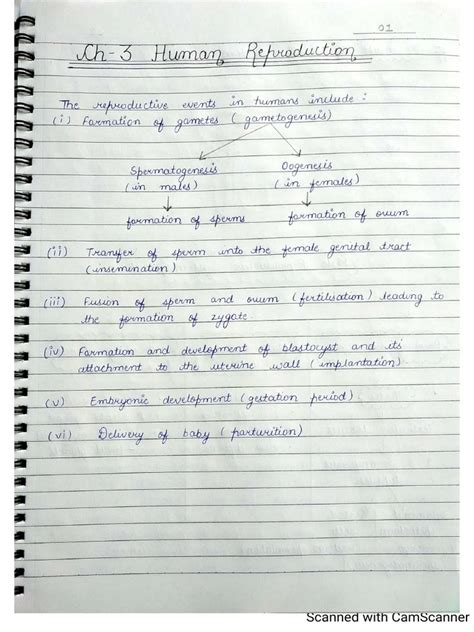 01
Ch-3 Human Reproduction
The reproductive events in humans include :
(i) Formation of gametes ( gametogenesis)
Spermatogenesis Oogenesis
(in males) (in females)
formation of sperms formation of ovum
(ii) Transfer of sperm into the female genital tract
(insemination)
(iii) Fusion of sperm and ovum (fertilisation) leading to
the formation of zygote.
(iv) Formation and development of blastocyst and its
attachment to the uterine wall (implantation)
(v) Embryonic development (gestation period)
(vi) Delivery of baby ( parturition)
Scanned with CamScanner